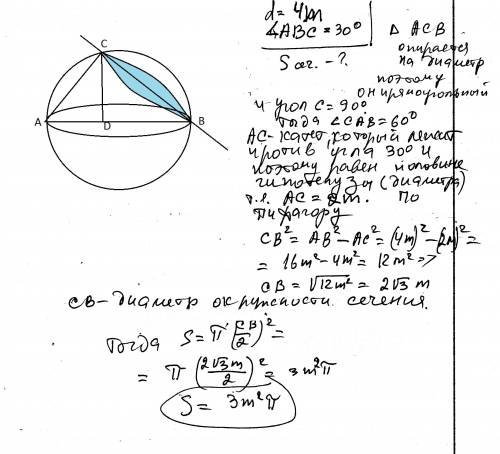 C
A
D
B
d = 4m
∡ABC = 30°
S сеч. - ?
Δ ACB
опирается
на диаметр
поэтому
он прямоугольный
и угол C = 90°
тогда ∠CAB = 60°
AC - катет, который лежит
против угла 30° и
поэтому равен половине
гипотенузы (диаметра)
т.е. AC = 2m. По
Пифагору
CB² = AB² - AC² = (4m)² - (2m)² =
= 16m² - 4m² = 12m² =>
CB = √12m² = 2√3 m
CB - диаметр окружности сечения.
Тогда S = π (CB/2)² =
= π (2√3m/2)² = 3m²π
S = 3m²π